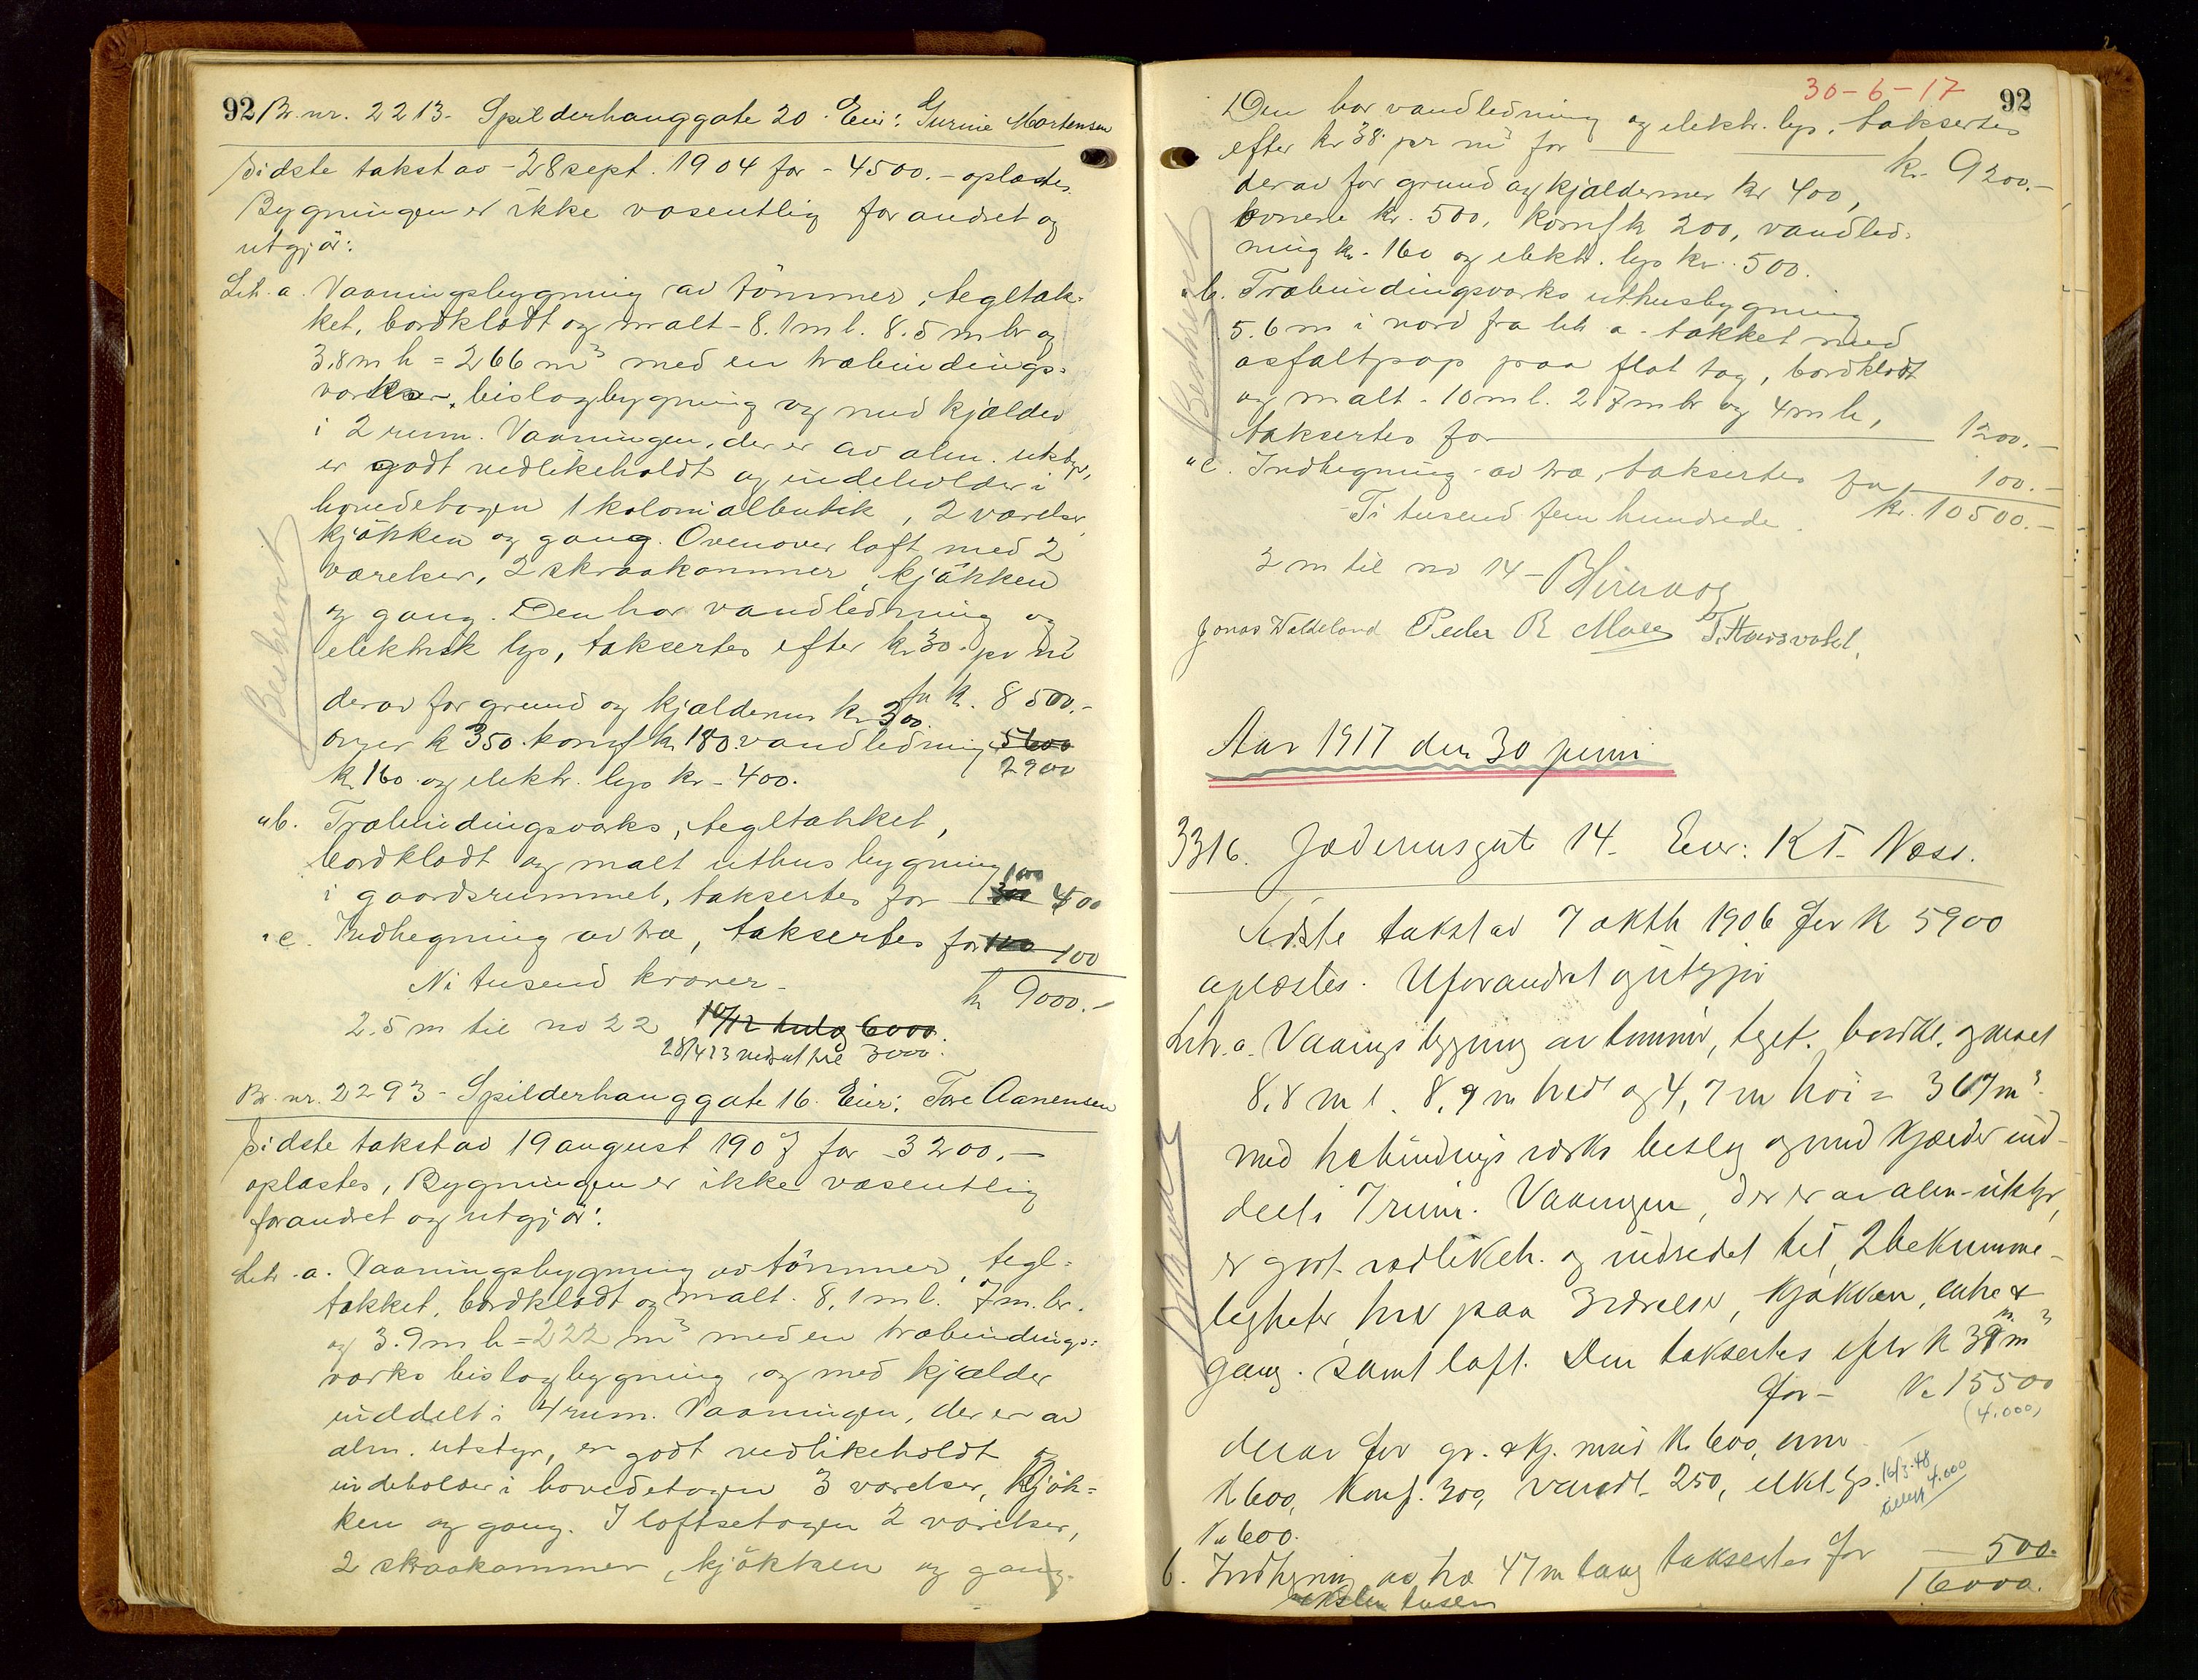 92 Br. nr. 2213 - Spilderhauggate 20. Eier: Gurine Martensen
Sidste takst av - 28 sept. 1904 for - 4500. - oplæstes.
Bygningen er ikke væsentlig forandret og
utgjör:
Litr. a. Vaaningsbygning av tömmer, tegltæk-
ket, bordklædt og malt - 8.1 m l. 8.5 m br og
3.8 m h = 266 m³ med en træbindings-
værks bislagbygning og med kjælder
i 2 rum. Vaaningen, der er av alm. utstyr,
er godt vedlikeholdt og indeholder i
hovedetagen 1 kolonialbutik, 2 værelser
kjökken og gang. Ovenover loft med 2
værelser, 2 skraakammer, kjökken
og gang. Den har vandledning og
elektrisk lys, taksertes efter kr 30. pr m³
for kr. 8500.-
derav for grund og kjældermur kr 300.
ovner kr 350. komf kr 180. vandledning 5600
2900
kr 160. og elektr. lys kr - 400.
" b. Træbindingsværks, tegltækket,
bordklædt og malt uthusbygning
100
i gaardsrummet, taksertes for 300 400
" c. Indhegning av træ, taksertes for 100 100
Ni tusend kroner -
kr 9000.-
2.5 m til no 22 6000.
28/4 23 nedsat til 3000.
Br. nr. 2293 - Spilderhauggate 16. Eier: Tore Aanensen
Sidste takst av 19 august 1907 for - 3200.-
oplæstes, Bygningen er ikke væsentlig
forandret og utgjör:
Litr. a. Vaaningsbygning av tömmer, tegl-
tækket, bordklædt og malt. 8,1 m l. 7 m. br.
og 3.9 m h = 222 m³ med en træbindings-
værks bislagbygning og med kjælder
inddelt i 4 rum. Vaaningen, der er av
alm. utstyr, er godt vedlikeholdt og
indeholder i hovedetagen 3 værelser, kjök-
ken og gang. I loftsetagen 2 værelser,
2 skraakammer, kjökken og gang.
30-6-17 92
Den har vandledning og elektr. lys, taksertes
efter kr 38. pr m³ for kr. 9200.-
derav for grund og kjældermur kr 400,
ovnene kr. 500, komf kr 200, vandled-
ning kr. 160 og elektr. lys kr. 500.
" b. Træbindingsværks uthusbygning
5.6 m i nord fra litr a - tækket med
asfaltpap paa flat tag, bordklædt
og malt - 10 m l. 2.7 m br og 4 m h,
taksertes for 1200.-
" c. Indhegning av træ, taksertes for 100.-
Ti tusend fem hundrede. kr. 10500.-
3 m til no 14 -
Jonas Waldeland Peder R
Aar 1917 den 30 juni
3316. Jæderensgate 14 - Eier: K T. Næss.
Sidste takst av 7 oktb 1906 for kr 5900
oplæstes. Uforandret og utgjör
Litr. a. Vaaningsbygning av tømmer, teglt. bordkl. og malt
8.8 m l. 8.9 m bred og 4,7 m høi = 367 m³
med træbindings værks bislag og med kjælder ind-
delt i 7 rum. Vaaningen, der er av alm-utstyr,
er godt vedlikeh. og indredet til 2 bekvemme-
ligheter, hver paa 3 værelser, kjøkken, entre &
gang. samt loft. Den taksertes efter kr 39 pr m³
for - kr 15500
(4.000)
derav for gr. & kj. mur kr 600, ovne
kr 600, komf. 300, vandl. 250, elekt. lys. 16/3-48
tillegg 4.000
kr 600.
b. Indhegning av træ 47 m lang taksertes for 500.
16000.
seksten tusen